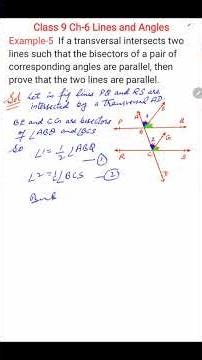 Class 9 Ch-6 Lines and Angles
Example-5 If a transversal intersects two
lines such that the bisectors of a pair of
corresponding angles are parallel, then
prove that the two lines are parallel.
Sol Let in fig lines PQ and RS are
intersected by a transversal AD.
BE and CG are bisectors
of ∠ABQ and ∠BCS
So
∠1 = 1/2 ∠ABQ —①
∠2 = 1/2 ∠BCS —②
But
A E
P B 1 Q
2 G
R C S
D